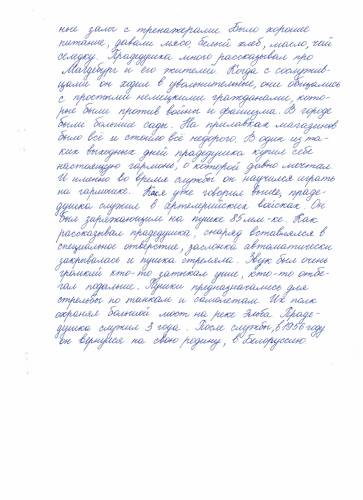 ные залы с тренажерами. Было хорошее
питание, давали мясо, белый хлеб, масло, чай
селедку. Прадедушка много рассказывал про
Магдебург и его жителей. Когда с сослужив-
цами он ходил в увольнительные, они общались
с простыми немецкими гражданами, кото-
рые были против войны и фашизма. В городе
были большие сады. На прилавках магазинов
было всё и стоило всё недорого. В один из та-
ких выходных дней прадедушка купил себе
настоящую гармонь, о которой давно мечтал.
И именно во время службы он научился играть
на гармошке. Как я уже говорил выше, праде-
душка служил в артелерийских войсках. Он
был заряжающим на пушке 85 мм-ке. Как
рассказывал прадедушка, снаряд вставлялся в
специальное отверстие, заслонка автоматически
закрывалась и пушка стреляла. Звук был очень
громкий кто-то затыкал уши, кто-то отбе-
гал подальше. Пушки предназначались для
стрельбы по танкам и самолетам. Их полк
охранял большой мост на реке Эльба. Праде-
душка служил 3 года. После службы, в 1956 году
он вернулся на свою родину, в Белоруссию.